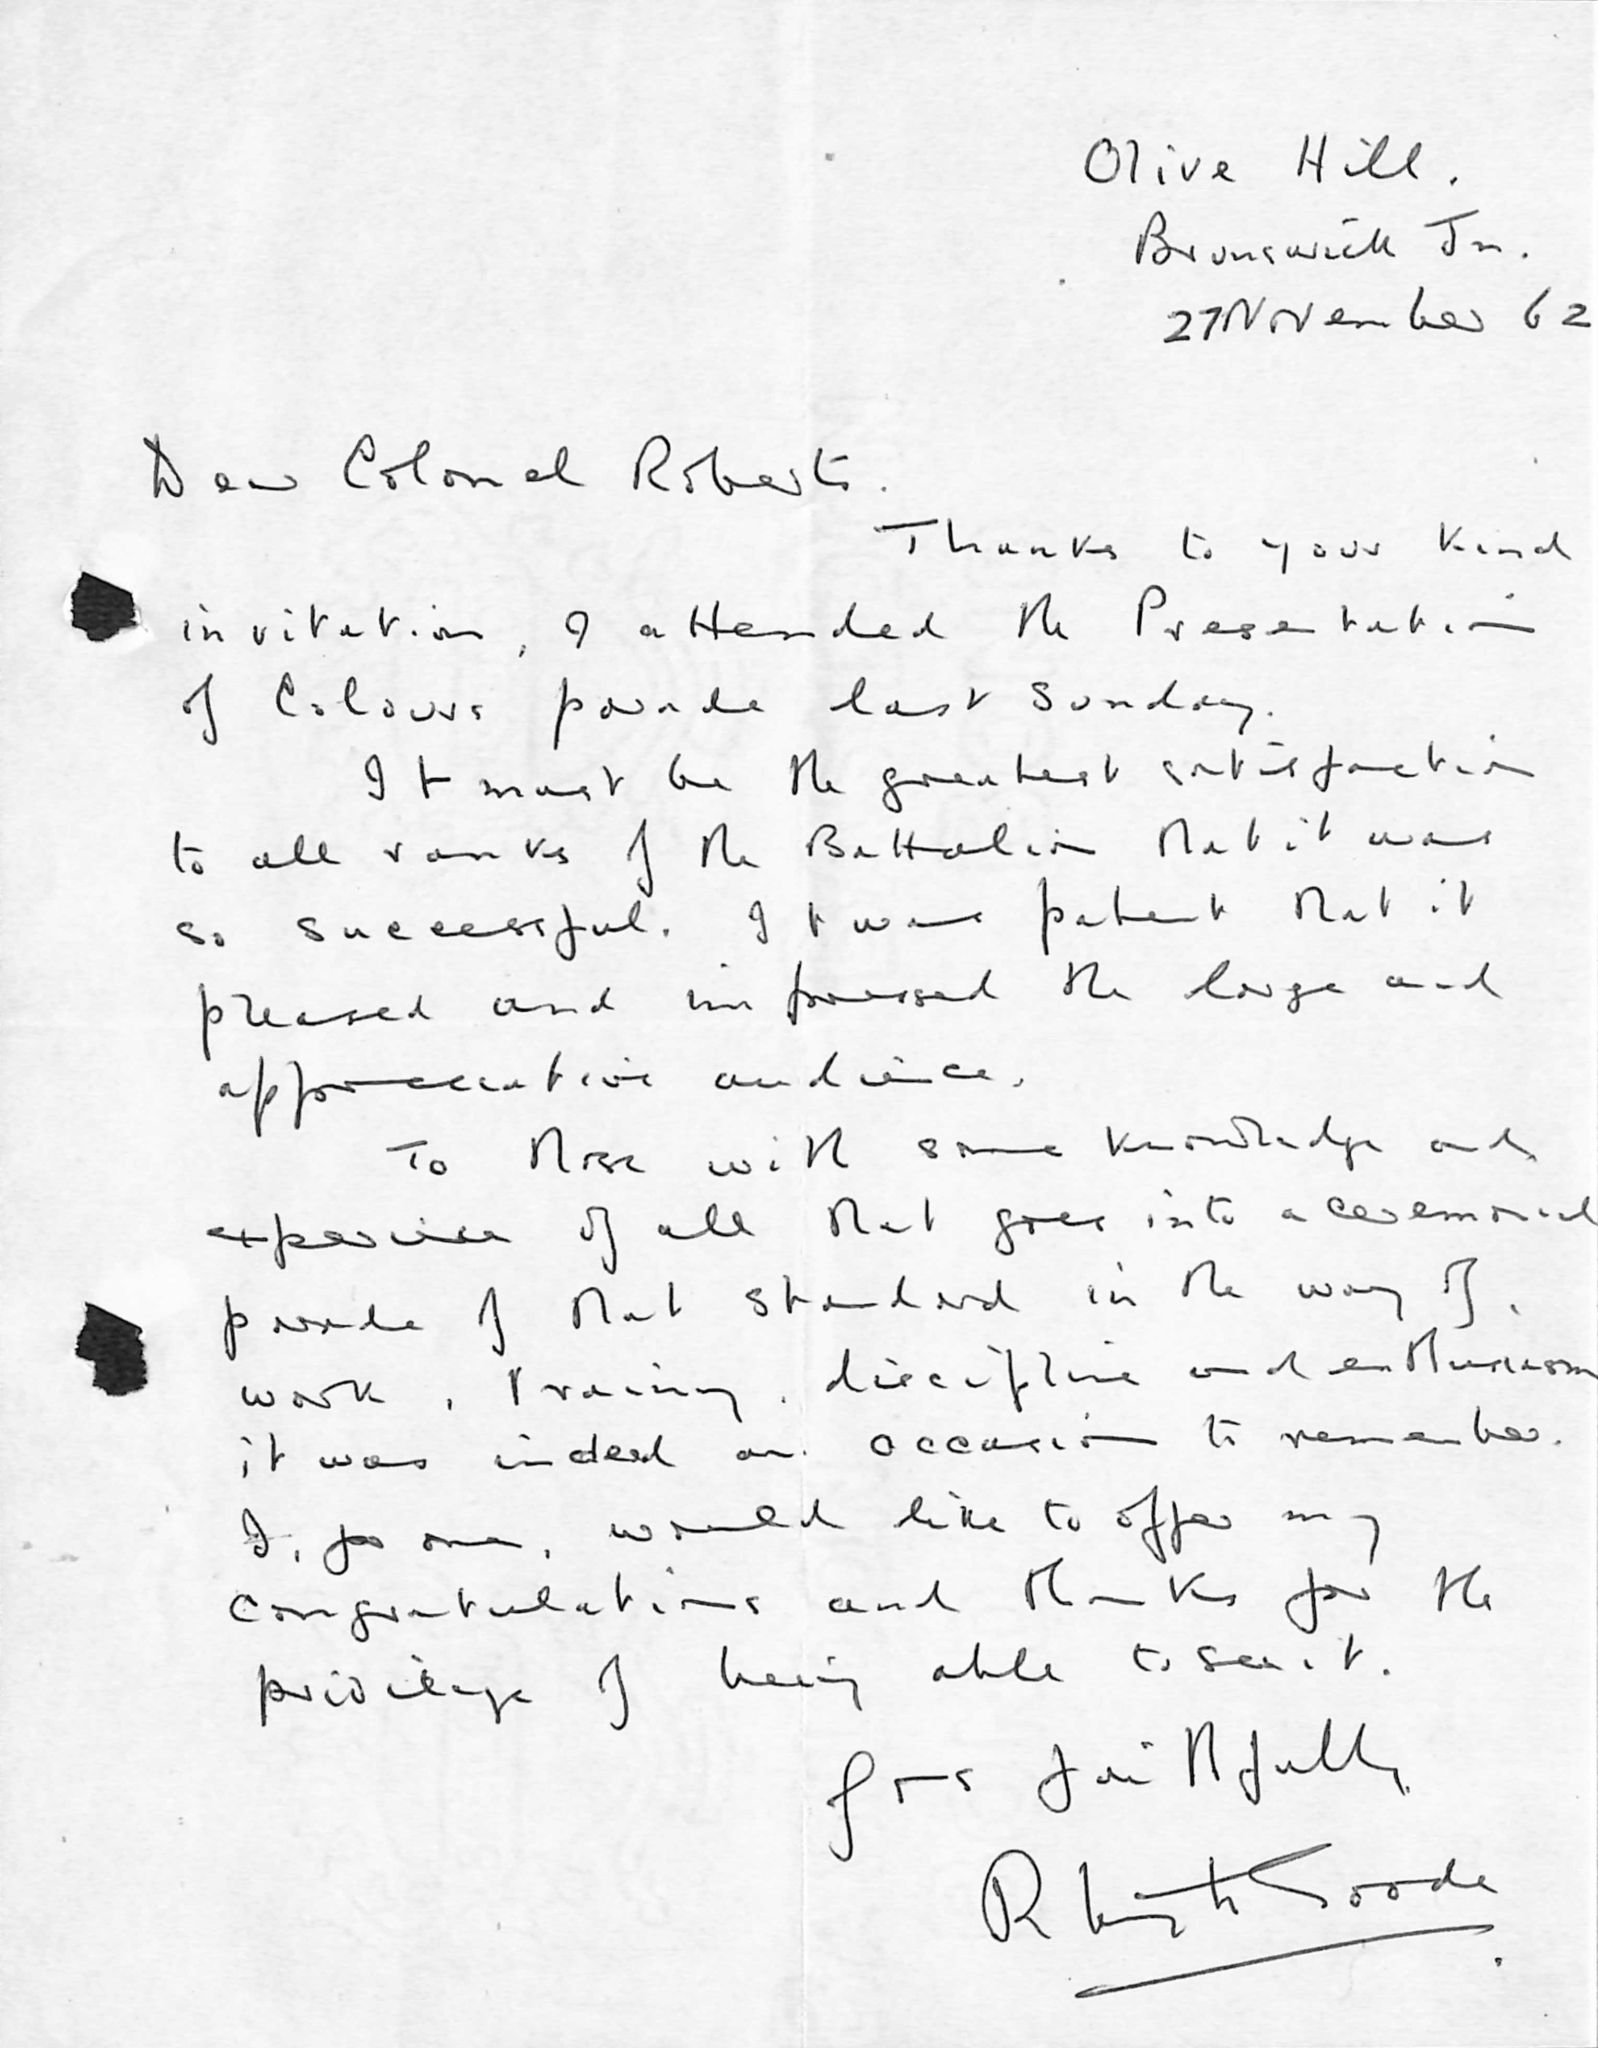 Olive Hill.
Brunswick Jn.
27 November 62
Dear Colonel Roberts.
Thanks to your kind
invitation, I attended the Presentation
of Colours parade last Sunday.
It must be the greatest satisfaction
to all ranks of the Battalion that it was
so successful. It was patent that it
pleased and impressed the large and
appreciative audience.
To those with some knowledge and
experience of all that goes into a ceremonial
parade of that standard in the way of,
work, training, discipline and enthusiasm
it was indeed an occasion to remember.
I, for one, would like to offer my
congratulations and thanks for the
privilege of being able to see it.
Yours faithfully
Goode